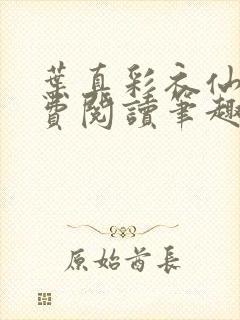 葉真彩衣仙
費閱讀筆趣
原始首長